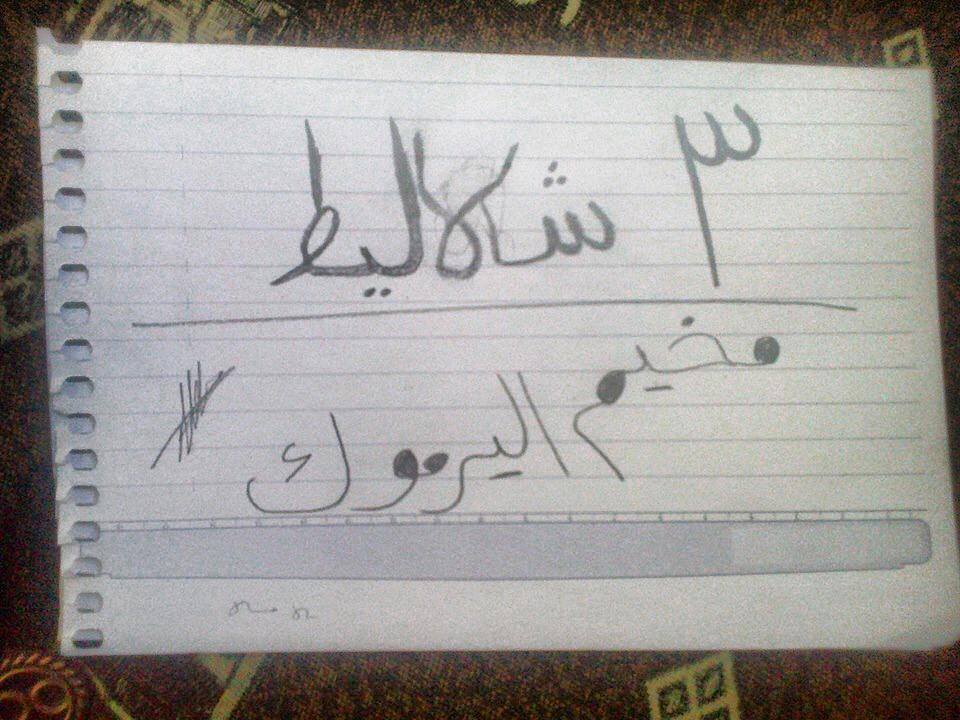 ٣ شلاليط
مخيم اليرموك